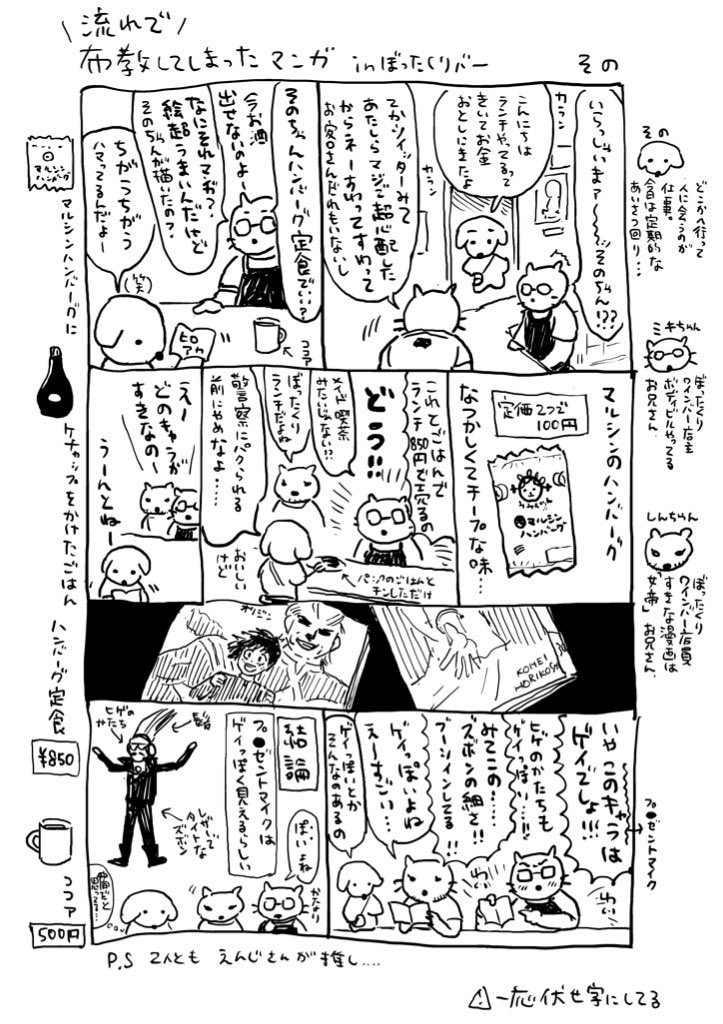 \流れで/
布教してしまったマンガ inぼったくりバー
その
その
どこかへ行って
人に会うのが
仕事。
今日は定期的な
あいさつ回り…
ミキちゃん
ぼったくり
ワインバー店主
ボディビルやってる
お兄さん.
しんちゃん
ぼったくり
ワインバー店員
すきな漫画は
「女帝」お兄さん.
いらっしゃいまァ〜〜〜ッそのちゃん!??
カラン
カラン
こんにちは
ランチやってるって
きいてお金
おとしにきたよ
てかツイッターみて
あたしらマジで超心配した
からネーすわってすわって
お客さんだれもいないし
そのちゃんハンバーグ定食でいい?
今お酒
出せないのよー
なにそれマヂ?
絵超うまいんだけど
そのちゃんが描いたの?
ちがうちがう
ハマってるんだよー
(笑)
ヒロアカ
ココア
マルシンのハンバーグ
定価2つで
100円
マルシン
ハンバーグ
なつかしくてチープな味…
これとごはんで
ランチ850円で売るの
どう!!
メイド喫茶
みたいじゃない!?
ぼったくり
ランチだよね
警察にパクられる
前にやめなよ……
おいしい
けど
パックのごはんと
チンしただけ
えー
どのキャラが
すきなのー
うーんとねー
オリジン
KOHEI
HORIKOSHI
いや このキャラは
ゲイでしょ!!!
プ●ゼントマイク
ヒゲのかたちも
ゲイっぽい…!!
みてこの……
ズボンの細さ!!
ブーツインしてる!!
ゲイっぽいよね
えーすごい…
ゲイっぽいとか
そんなのあるの
わいわい
結論
プ●ゼントマイクは
ゲイっぽく見えるらしい
ヒゲの
かたち
レザーで
タイトな
ズボン
ぽいよね
かなり
仲間だと
思ってる…
マルシン
ハンバーグ
マルシンハンバーグに
ケチャップをかけたごはん
ハンバーグ定食
¥850
ココア
500円
P.S 2人とも えんじさんが推し….
⚠一応伏せ字にしてる